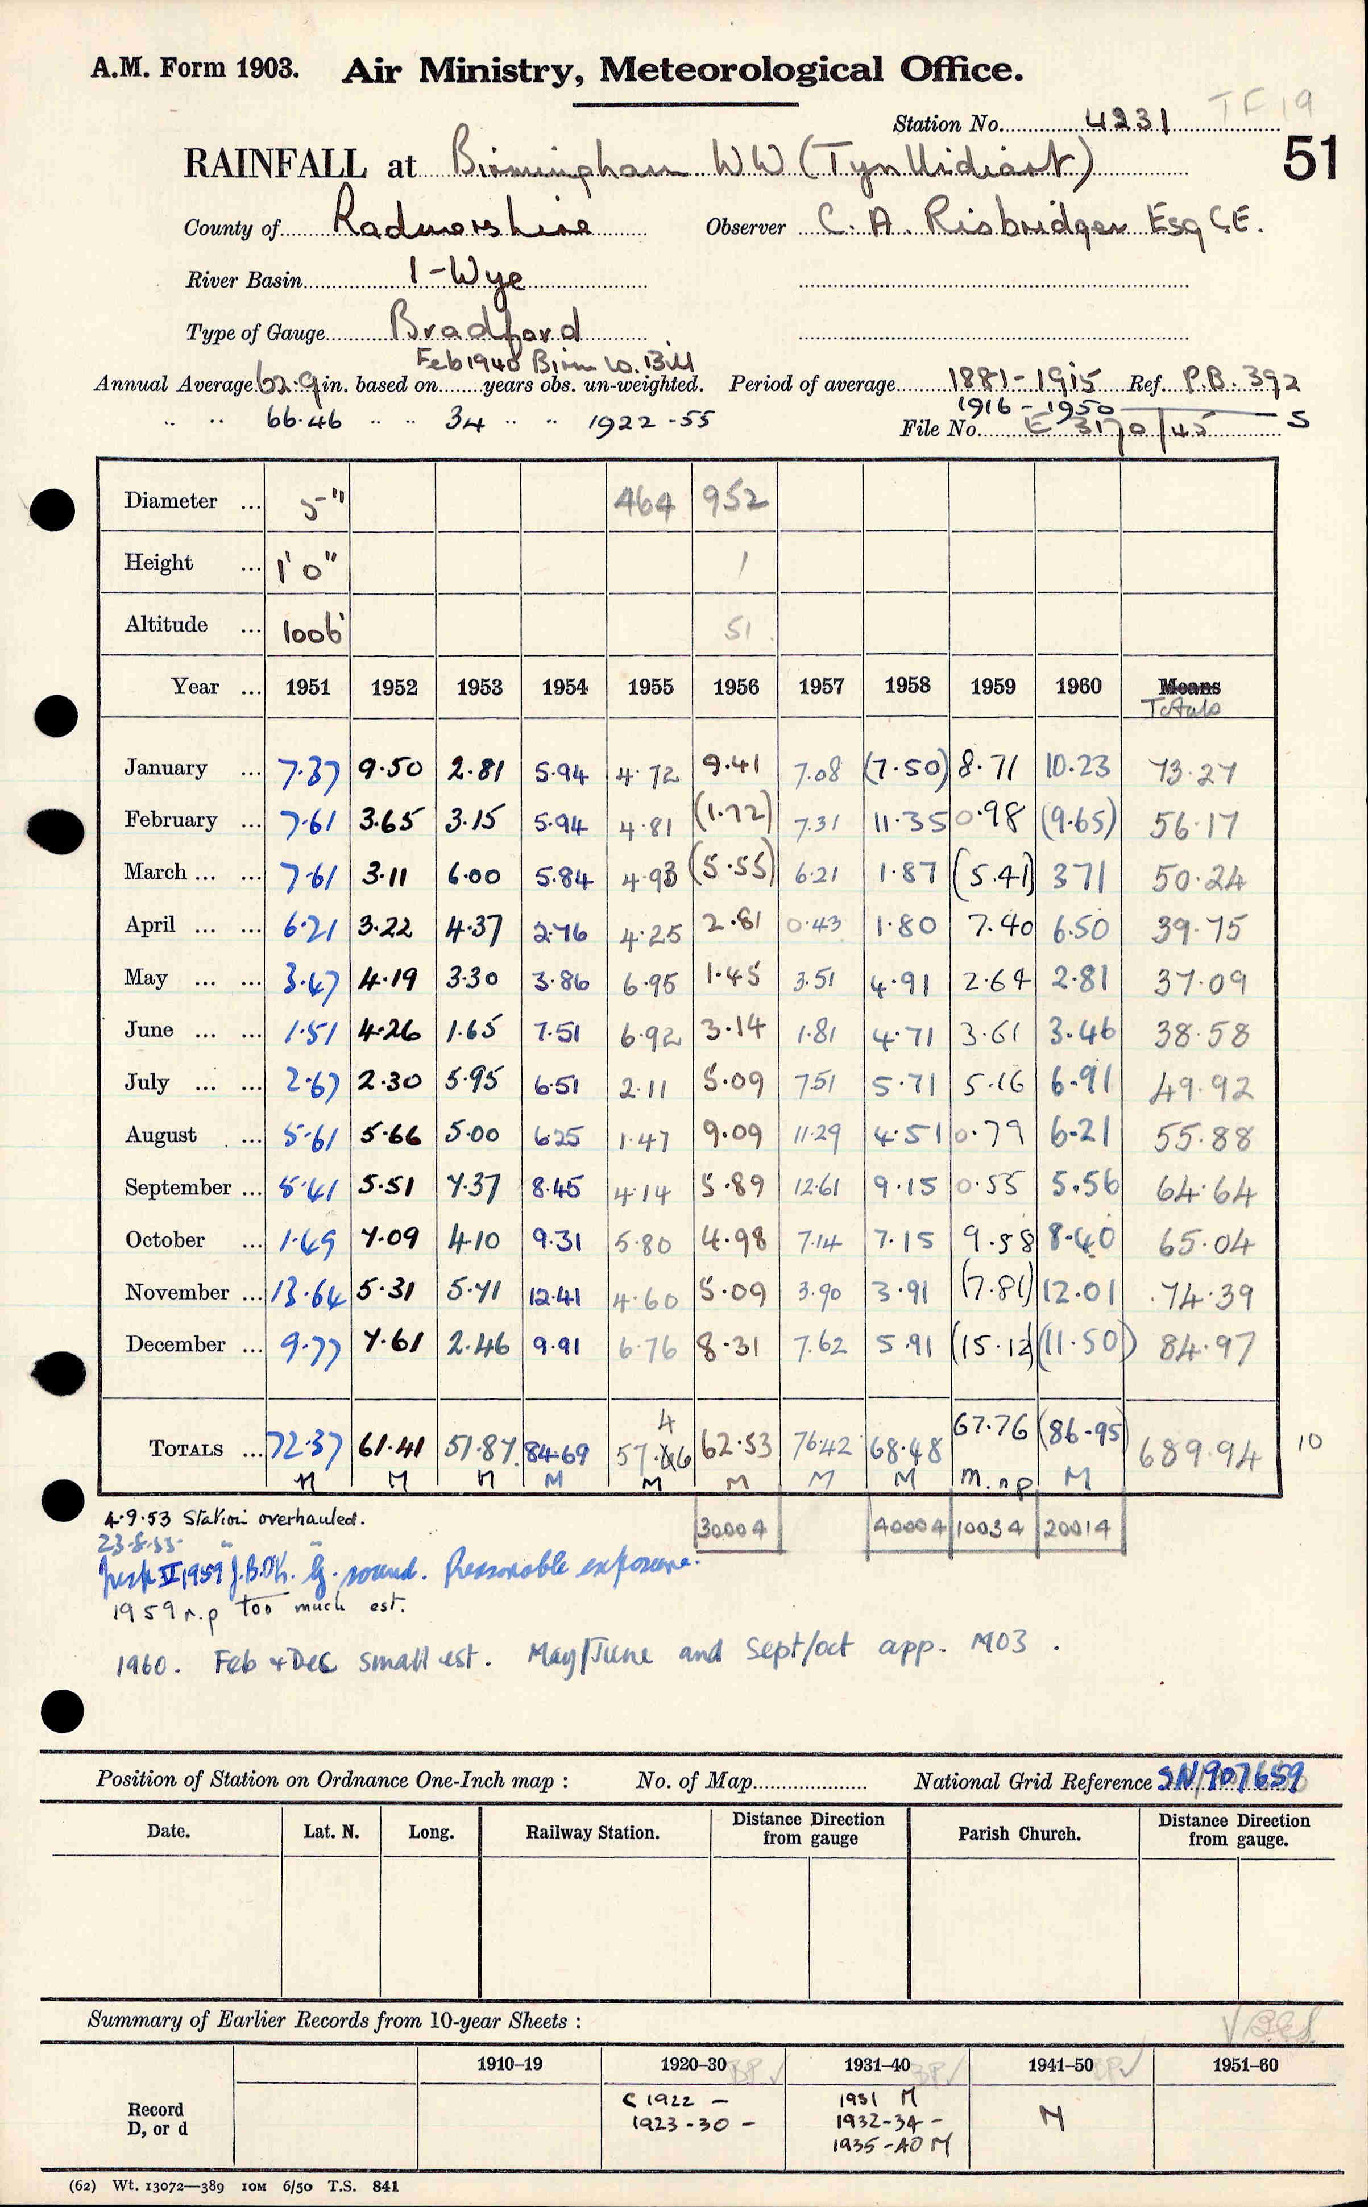 A.M. Form 1903. Air Ministry, Meteorological Office.
TF 19
Station No. 4231
51
RAINFALL at Birmingham WW (Tyn Llidiart)
County of Radnorshire Observer C. A. Risbridger Esq C.E.
River Basin 1-Wye
Type of Gauge Bradford
Feb 1940 Birm W. Bill
Annual Average 62.9 in. based on years obs. un-weighted. Period of average 1881-1915 Ref. P.B. 392
1916-1950 S
" " 66.46 " " 34 " " 1922-55 File No. E 3170/45
Diameter ... 5" 464 952
Height ... 1' 0" 1
Altitude ... 1006' 51
Year ... 1951 1952 1953 1954 1955 1956 1957 1958 1959 1960 Means
Totals
January ... 7.37 9.50 2.81 5.94 4.72 9.41 7.08 (7.50) 8.71 10.23 73.27
February ... 7.61 3.65 3.15 5.94 4.81 (1.72) 7.31 11.35 0.98 (9.65) 56.17
March ... ... 7.61 3.11 6.00 5.84 4.93 (5.55) 6.21 1.87 (5.41) 3 71 50.24
April ... ... 6.21 3.22 4.37 2.76 4.25 2.81 0.43 1.80 7.40 6.50 39.75
May ... ... 3.47 4.19 3.30 3.86 6.95 1.45 3.51 4.91 2.64 2.81 37.09
June ... ... 1.51 4.26 1.65 7.51 6.92 3.14 1.81 4.71 3.61 3.46 38.58
July ... ... 2.67 2.30 5.95 6.51 2.11 5.09 7.51 5.71 5.16 6.91 49.92
August ... 5.61 5.66 5.00 6.25 1.47 9.09 11.29 4.51 0.79 6.21 55.88
September ... 5.41 5.51 7.37 8.45 4.14 5.89 12.61 9.15 0.55 5.56 64.64
October ... 1.49 7.09 4.10 9.31 5.80 4.98 7.14 7.15 9.58 8.40 65.04
November ... 13.64 5.31 5.71 12.41 4.60 5.09 3.90 3.91 (7.81) 12.01 74.39
December ... 9.77 7.61 2.46 9.91 6.76 8.31 7.62 5.91 (15.12) (11.50) 84.97
4
TOTALS ... 72.37 61.41 51.87 84.69 57.46 62.53 76.42 68.48 67.76 (86.95) 689.94 10
M M M M M M M M m.n.p M
30004 40004 10034 20014
4.9.53 Station overhauled.
23.8.55 " "
Insp V 1959 J.B.OK. G. sound. Reasonable exposure.
1959 n.p too much est.
1960. Feb & Dec small est. May/June and Sept/Oct app. MO3.
Position of Station on Ordnance One-Inch map : No. of Map National Grid Reference SN/907659
Date. Lat. N. Long. Railway Station. Distance Direction from gauge Parish Church. Distance Direction from gauge.
Summary of Earlier Records from 10-year Sheets :
1910–19 1920–30 1931–40 1941–50 1951–60
BP ✓ BP ✓ BP ✓
Record D, or d
C 1922 – 1931 M M
1923-30 – 1932-34 –
1935-40 M
(62) Wt. 13072—389 10M 6/50 T.S. 841